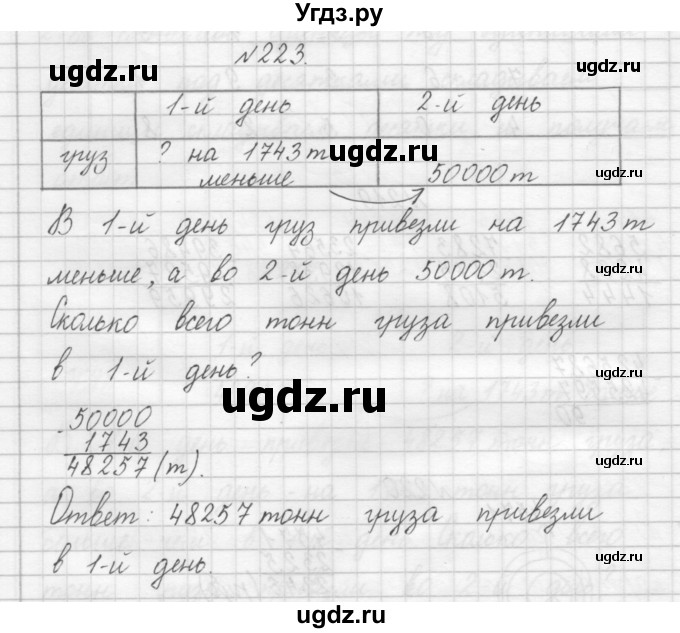 Угдз.ру
№223.
1-й день 2-й день
груз ? на 1743 т
меньше 50000 т
В 1-й день груз привезли на 1743 т
меньше, а во 2-й день 50000 т.
Сколько всего тонн груза привезли
в 1-й день?
- 50000
1743
48257 (т).
Ответ: 48257 тонн груза привезли
в 1-й день.
ugdz.ru
ugdz.ru
ugdz.ru
ugdz.ru
ugdz.ru
ugdz.ru
ugdz.ru
ugdz.ru
ugdz.ru
ugdz.ru